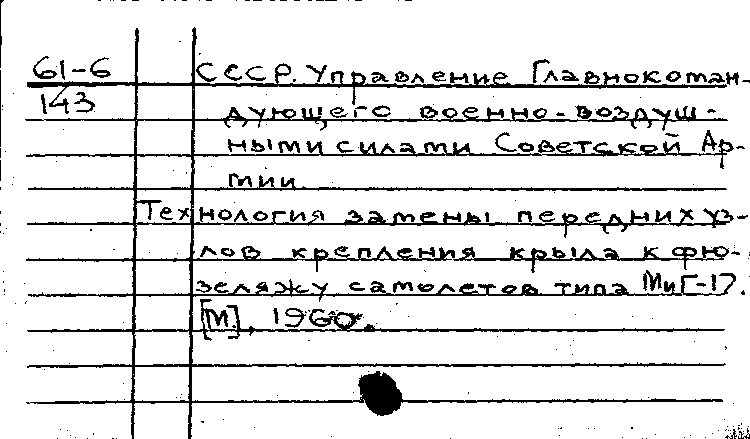 61-6 СССР. Управление Главнокоман-
143 дующего военно-воздуш-
ными силами Советской Ар-
мии
Технология замены передних уз-
лов крепления крыла к фю-
зеляжу самолетов типа МиГ-17.
[М], 1960.